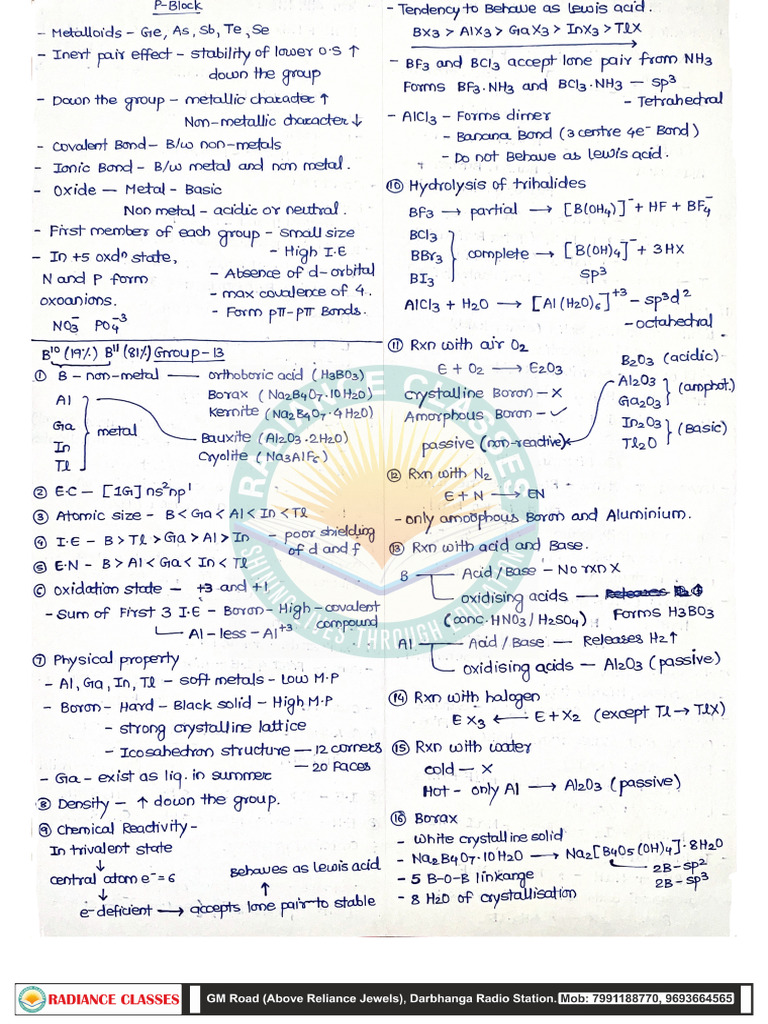 P-Block
- Metalloids - Ge, As, Sb, Te, Se
- Inert pair effect - stability of lower O.S ↑
down the group
- Down the group - metallic character ↑
Non-metallic character ↓
- Covalent Bond - B/w non-metals
- Ionic Bond - B/w metal and non metal.
- Oxide — Metal - Basic
Non metal - acidic or neutral.
- First member of each group - small size
- High I.E
- Absence of d-orbital
- max covalence of 4.
- Form pπ-pπ Bonds.
- In +5 oxdⁿ state,
N and P form
oxoanions.
NO₃⁻ PO₄⁻³
B¹⁰ (19%) B¹¹ (81%) Group-13
① B - non-metal — orthoboric acid (H₃BO₃)
Borax (Na₂B₄O₇·10H₂O)
Kernite (Na₂B₄O₇·4H₂O)
Al
Ga
In
Tl
metal
Bauxite (Al₂O₃·2H₂O)
Cryolite (Na₃AlF₆)
② E.C - [IG] ns²np¹
③ Atomic size - B < Ga < Al < In < Tl
④ I.E - B > Tl > Ga > Al > In - poor shielding
of d and f
⑤ E.N - B > Al < Ga < In < Tl
⑥ oxidation state - +3 and +1
- Sum of First 3 I.E - Boron - High - covalent
compound
Al - less - Al⁺³
⑦ Physical property
- Al, Ga, In, Tl - soft metals - Low M.P
- Boron - Hard - Black solid - High M.P
- strong crystalline lattice
- Icosahedron structure — 12 corners
— 20 Faces
- Ga - exist as liq. in summer
⑧ Density - ↑ down the group.
⑨ Chemical Reactivity -
In trivalent state
↓
central atom e⁻ = 6
↓
e-deficient → accepts lone pair to stable
↑
Behaves as lewis acid
- Tendency to Behave as lewis acid.
BX₃ > AlX₃ > GaX₃ > InX₃ > TlX
- BF₃ and BCl₃ accept lone pair from NH₃
Forms BF₃·NH₃ and BCl₃·NH₃ — sp³
- Tetrahedral
- AlCl₃ - Forms dimer
- Banana Bond (3 centre 4e⁻ Bond)
- Do not Behave as lewis acid.
⑩ Hydrolysis of trihalides
BF₃ → partial → [B(OH₄)]⁻ + HF + BF₄⁻
BCl₃
BBr₃
BI₃
complete → [B(OH)₄]⁻ + 3HX
sp³
AlCl₃ + H₂O → [Al(H₂O)₆]⁺³ - sp³d²
- octahedral
⑪ Rxn with air O₂
E + O₂ → E₂O₃
crystalline Boron - ×
Amorphous Boron - ✓
passive (non-reactive)
B₂O₃ (acidic)
Al₂O₃
Ga₂O₃
(amphot.)
In₂O₃
Tl₂O
(Basic)
⑫ Rxn with N₂
E + N → EN
- only amorphous Boron and Aluminium.
⑬ Rxn with acid and Base.
B — Acid / Base - No rxn X
oxidising acids —
(conc. HNO₃ / H₂SO₄) Forms H₃BO₃
Al — Acid / Base — Releases H₂ ↑
oxidising acids - Al₂O₃ (passive)
⑭ Rxn with halogen
E X₃ ← E + X₂ (except Tl → TlX)
⑮ Rxn with water
cold - ×
Hot - only Al → Al₂O₃ (passive)
⑯ Borax
- White crystalline solid
- Na₂B₄O₇·10H₂O → Na₂[B₄O₅(OH)₄]·8H₂O
2B - sp²
2B - sp³
- 5 B-O-B linkange
- 8 H₂O of crystallisation
RADIANCE CLASSES
SHINING LIVES THROUGH EDUCATION
RADIANCE CLASSES
GM Road (Above Reliance Jewels), Darbhanga Radio Station. Mob: 7991188770, 9693664565